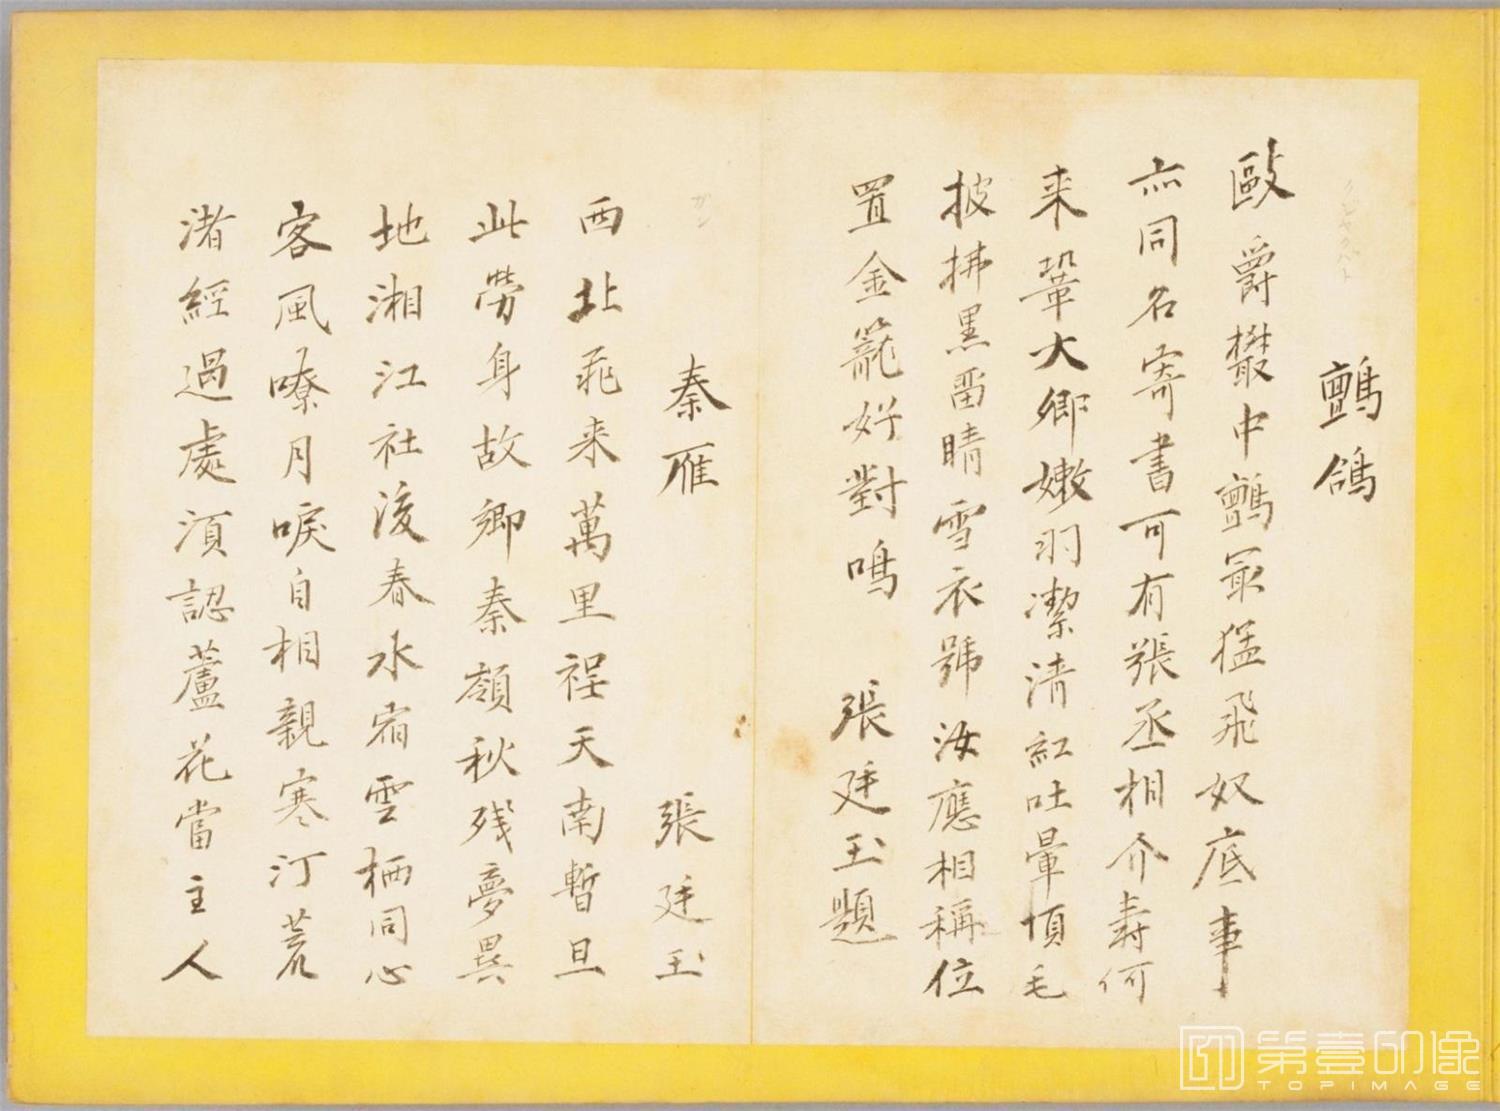 鸇鴿
毆爵鬱中鸇最猛飛奴底事
亦同名寄書可有張丞相介壽何
来鞏大卿嫩羽潔清紅吐暈頂毛
披拂黑畱睛雪衣號汝應相稱位
置金籠好對鳴 張廷玉題
秦雁 張廷玉
西北飛来萬里程天南暫且
此勞身故鄉秦嶺秋殘夢異
地湘江社後春水宿雲栖同心
客風嘹月唳自相親寒汀荒
渚經過處須認蘆花當主人
ガン
第壹印像
TOPIMAGE